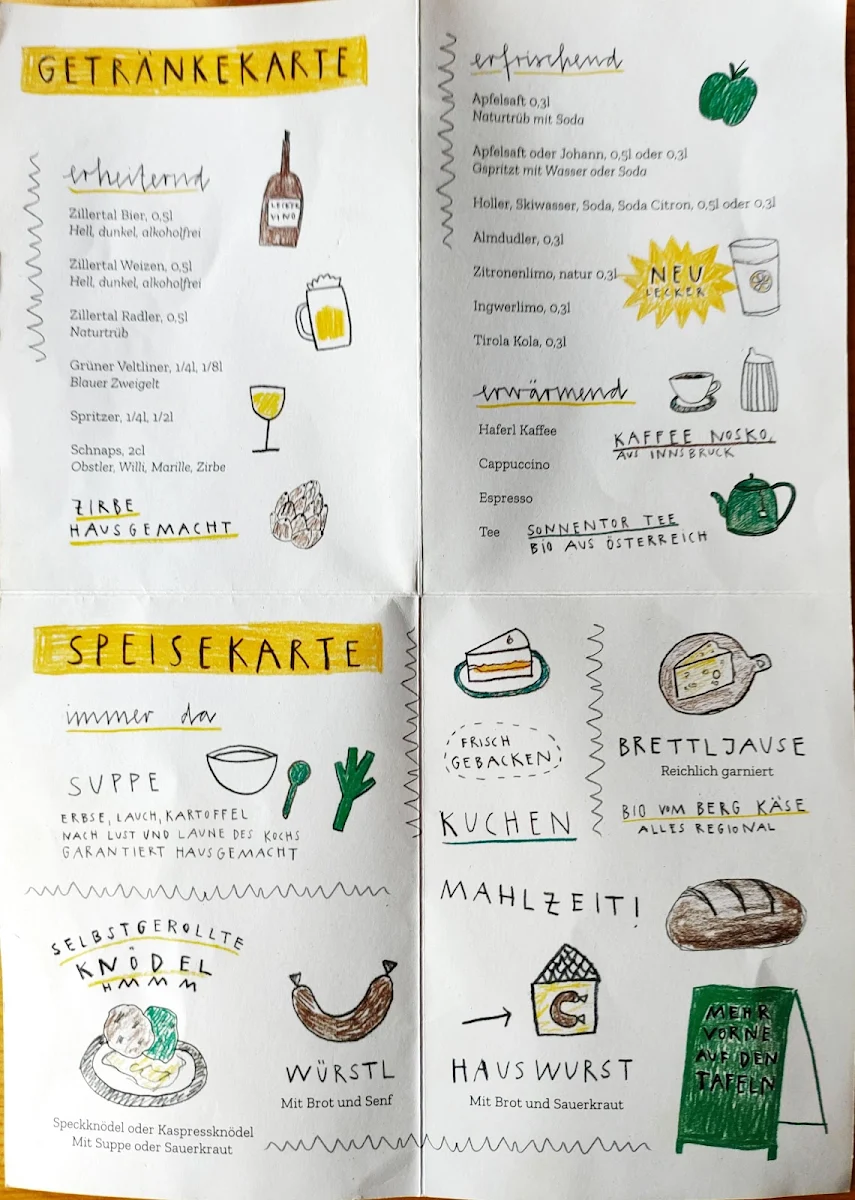 GETRÄNKEKARTE
erheiternd
LEIWTE
VINO
Zillertal Bier, 0,5l
Hell, dunkel, alkoholfrei
Zillertal Weizen, 0,5l
Hell, dunkel, alkoholfrei
Zillertal Radler, 0,5l
Naturtrüb
Grüner Veltliner, 1/4l, 1/8l
Blauer Zweigelt
Spritzer, 1/4l, 1/2l
Schnaps, 2cl
Obstler, Willi, Marille, Zirbe
ZIRBE
HAUSGEMACHT
erfrischend
Apfelsaft 0,3l
Naturtrüb mit Soda
Apfelsaft oder Johann, 0,5l oder 0,3l
Gspritzt mit Wasser oder Soda
Holler, Skiwasser, Soda, Soda Citron, 0,5l oder 0,3l
Almdudler, 0,3l
Zitronenlimo, natur 0,3l
NEU
LECKER
Ingwerlimo, 0,3l
Tirola Kola, 0,3l
erwärmend
Haferl Kaffee
KAFFEE NOSKO,
AUS INNSBRUCK
Cappuccino
Espresso
Tee
SONNENTOR TEE
BIO AUS ÖSTERREICH
SPEISEKARTE
immer da
SUPPE
ERBSE, LAUCH, KARTOFFEL
NACH LUST UND LAUNE DES KOCHS
GARANTIERT HAUSGEMACHT
SELBSTGEROLLTE
KNÖDEL
HMMM
Speckknödel oder Kaspressknödel
Mit Suppe oder Sauerkraut
WÜRSTL
Mit Brot und Senf
FRISCH
GEBACKEN
KUCHEN
BRETTLJAUSE
Reichlich garniert
BIO VOM BERG KÄSE
ALLES REGIONAL
MAHLZEIT!
HAUSWURST
Mit Brot und Sauerkraut
MEHR
VORNE
AUF DEN
TAFELN